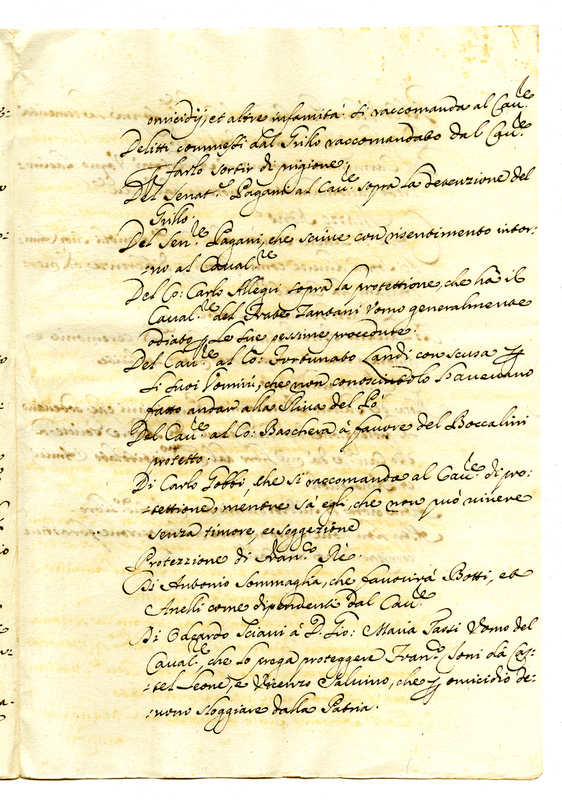 omicidij, et altre infamità si raccomanda al Cau.re
Delitti commessi dal Grillo raccomandato dal Cau.re
farlo sortir di prigione.
Del Senat.e Pagani al Cau.re sopra la detenzione del
Grillo.
Del Sen.re Pagani, che scriue con risentimento intor-
no al Caual.re
Del Co: Carlo Allegri sopra la protettione, che hà il
Caual.re del Frate Tantani Vomo generalmente
odiato le sue pessime procedute.
Del Cau.re al Co: Fortunato Landi con scusa
si suoi Vomini, che non conoscendolo l'aueuano
fatto andar alla Riua del Pò
Del Cau.re al Co: Baschera à fauore del Boccalini
protetto
Di Carlo Gobbi, che si raccomanda al Cau.re di pro-
tettione, mentre sà egli, che non può uiuere
senza timore, e soggezione
Protezzione di Fran.co Rè.
Di Antonio Sommaglia, che fauorirà Botti, et
Anelli come dipendenti dal Cau.re
Di Odoardo Sciaui à D. Gio: Maria Tassi Vomo del
Caual.re, che lo prega proteggere Fran.co Soni da Cas-
tel Leone, e Vicenzo Saluino, che omicidio de-
uono sloggiare dalla Patria.